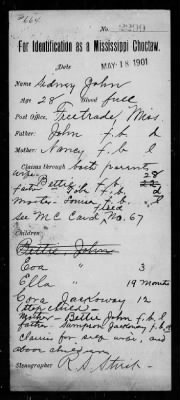 #664
No. 2299
For Identification as a Mississippi Choctaw.
Date MAY 18 1901
Name Sidney John
Age 28 Blood full
Post Office, Freetrade, Miss.
Father: John f.b. d
Mother: Nancy f.b. l
Claims through both parents
wife Bettie f.b. 28
father John f.b. d
mother Louisa f.b. l
See M C Card No. 67
Children:
Bettie John
Eva 3
Ella 19 months
Cora Jackoway 12
(step child)
mother - Bettie John f.b. l
father - Sampson Jackoway f.b. d
Claims for self, wife, and
above children
Stenographer R S Streit